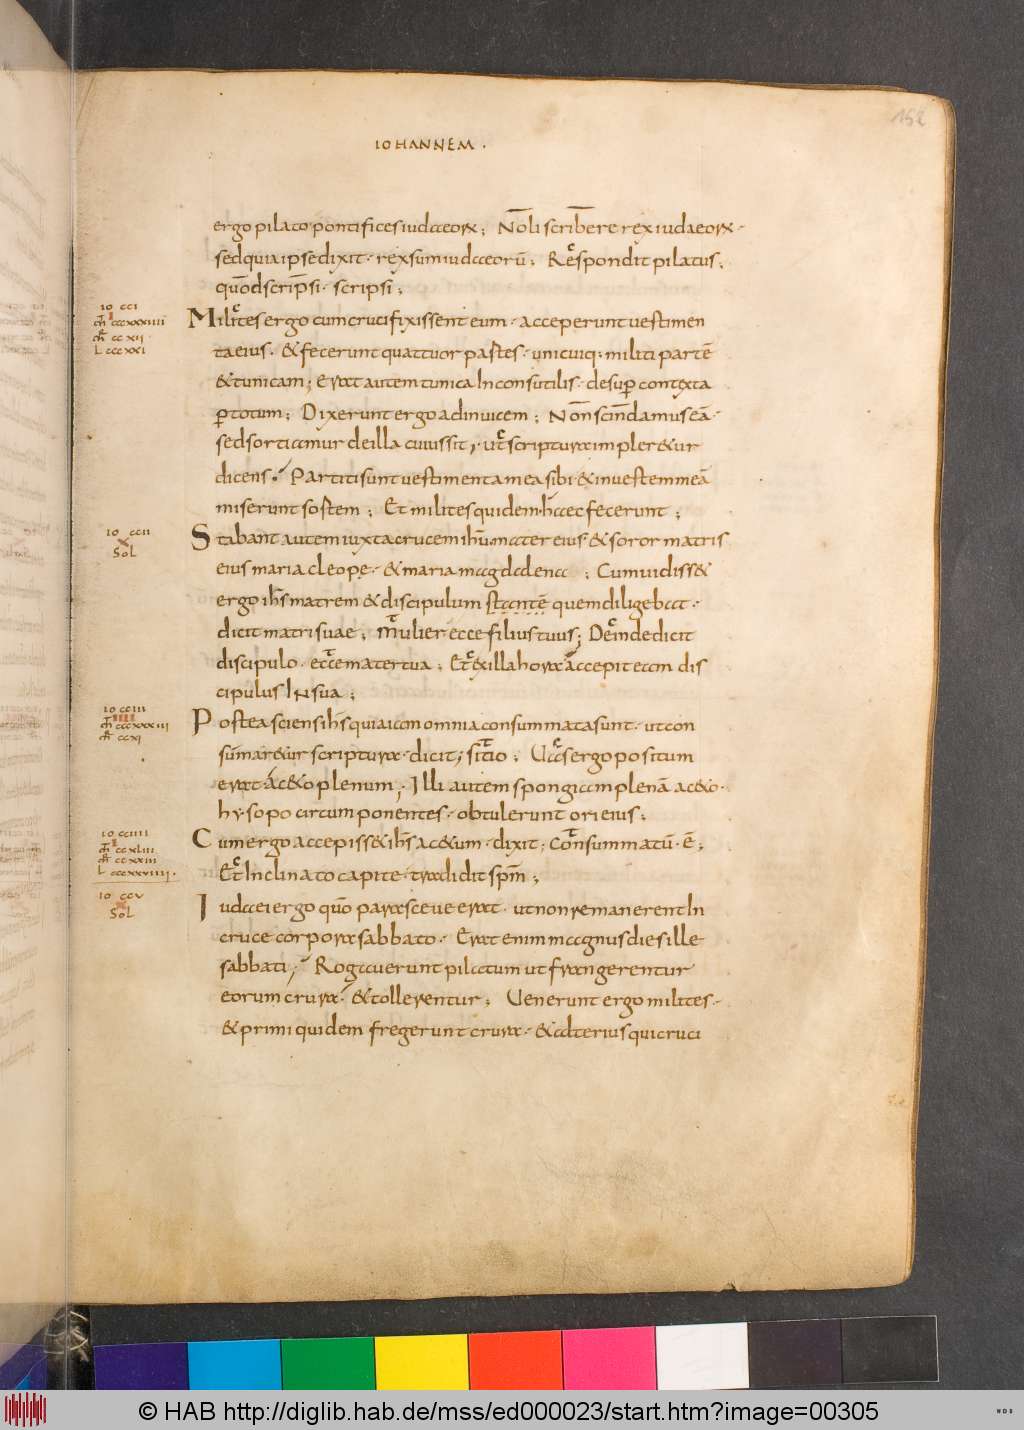 152
IOHANNEM .
ergo pilato pontifices iudaeorꝝ ; Noli scribere rex iudaeorꝝ ·
sed quia ipse dixit · rex sum iudaeorū ; Respondit pilatus ;
quod scripsi · scripsi ;
IO CCI
Milites ergo cum crucifixissent eum · acceperunt uestimen
mͭ cccxxxiiii
mͬ ccxii
L cccxxi
ta eius · & fecerunt quattuor partes · unicuiq; militi partē
& tunicam ; Erat autem tunica Inconsutilis · desuꝑ contexta
ꝑ totum ; Dixerunt ergo adinuicem ; Non scindamus eā ·
sed sortiamur de illa cuius sit ; ut scriptura impler&ur
dicens · Partiti sunt uestimenta mea sibi · & in uestem meā
miserunt sortem ; Et milites quidem haec fecerunt ;
IO CCII
SOL
Stabant autem iuxta crucem ihū mater eius & soror matris
eius maria cleope · & maria magdalenae ; Cum uidiss&
ergo ihs̄ matrem & discipulum stantē quem diligebat ·
dicit matri suae ; mulier ecce filius tuus ; Deinde dicit
discipulo · ecce mater tua ; Et ex illa hora accepit eam dis
cipulus In sua ;
IO CCIII
mͭ cccxxxiii
mͬ ccxi
Postea sciens ihs̄ quia iam omnia consummata sunt · ut con
summar&ur scriptura · dicit ; sitio ; Uas ergo positum
erat ac&o plenum ; Illi autem spongiam plenā ac&o ·
hysopo circumponentes · obtulerunt ori eius ;
IO CCIIII
mͭ ccxliii
mͬ ccxxiii
L cccxxviiii ·
Cum ergo accepiss& ihs̄ ac&um · dixit ; Consummatū · ē ;
Et Inclinato capite tradidit spm̄ ;
IO CCV
SOL
Iudaei ergo quō parasceue erat · ut non remanerent In
cruce corpora sabbato · Erat enim magnus dies ille
sabbati ; Rogauerunt pilatum ut frangerentur
eorum crura · & tollerentur ; Uenerunt ergo milites ·
& primi quidem fregerunt crura · & alterius qui cruci
© HAB http://diglib.hab.de/mss/ed000023/start.htm?image=00305
WDB